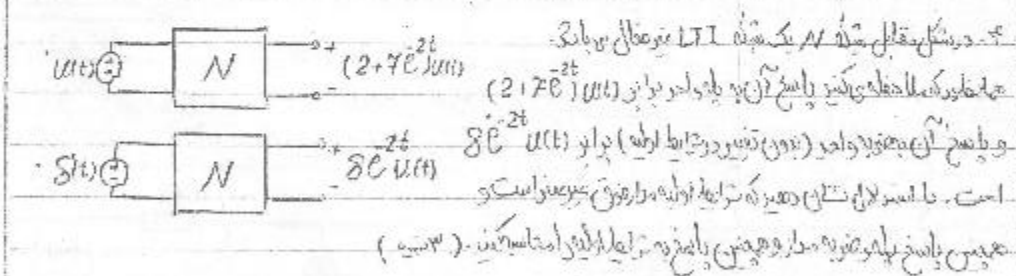 ۴- در شکل مقابل شبکه N یک شبکه LTI غیرفعال می باشد.
U(t) N + (2+7e^-2t)U(t) -
همانطور که ملاحظه می کنید پاسخ آن به پله واحد برابر (2+7e^-2t)U(t)
و پاسخ آن به ضربه واحد (بدون تغییر در شرایط اولیه) برابر 8e^-2t U(t)
δ(t) N + 8e^-2t U(t) -
است. با استدلال نشان دهید که شرایط اولیه مدار فوق غیر صفر است و
همچنین پاسخ پله، ضربه مدار و همچنین پاسخ به شرایط اولیه را محاسبه کنید. (۳ نمره)